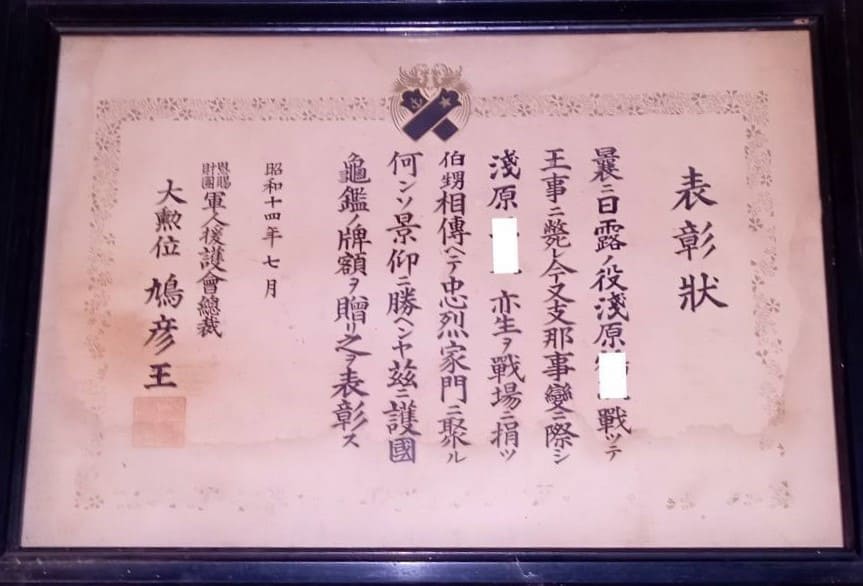 表彰狀
曩ニ日露ノ役淺原戰ツテ
王事ニ斃レ今又支那事變ニ際シ
淺原 亦生ヲ戰場ニ捐ツ
伯甥相傳ヘテ忠烈家門ニ聚ル
何ンソ景仰ニ勝ヘンヤ茲ニ護國
龜鑑ノ牌額ヲ贈リ之ヲ表彰ス
昭和十四年七月
恩賜財團軍人援護會總裁
大勲位 鳩彦王